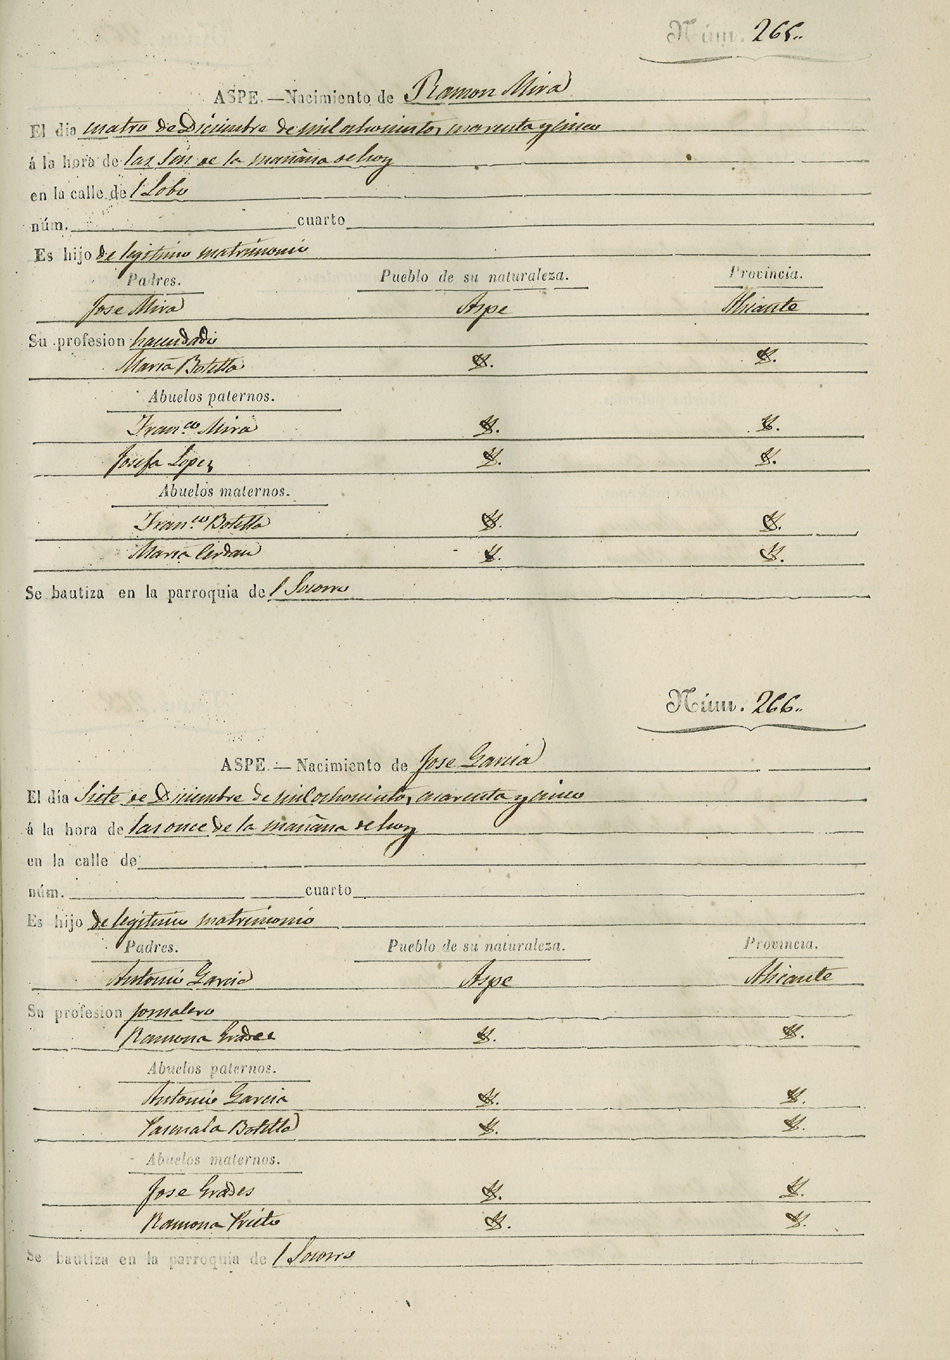 Núm. 265..
ASPE.—Nacimiento de Ramon Mira
El día cuatro de Diciembre de mil ochocientos cuarenta y cinco
á la hora de las seis de la mañana de hoy
en la calle de l Lobo
núm. cuarto
Es hijo de legitimo matrimonio
Padres. Pueblo de su naturaleza. Provincia.
Jose Mira Aspe Alicante
Su profesion hacendado
Maria Botella Y. Y.
Abuelos paternos.
Fran.co Mira Y. Y.
Josefa Lopez Y. Y.
Abuelos maternos.
Fran.co Botella Y. Y.
Maria Cerdan Y. Y.
Se bautiza en la parroquia de l Socorro
Núm. 266..
ASPE.—Nacimiento de Jose Garcia
El día Siete de Diciembre de mil ochocientos cuarenta y cinco
á la hora de las once de la mañana de hoy
en la calle de
núm. cuarto
Es hijo de legitimo matrimonio
Padres. Pueblo de su naturaleza. Provincia.
Antonio Garcia Aspe Alicante
Su profesion jornalero
Ramona Grades Y. Y.
Abuelos paternos.
Antonio Garcia Y. Y.
Pascuala Botella Y. Y.
Abuelos maternos.
Jose Grades Y. Y.
Ramona Prieto Y. Y.
Se bautiza en la parroquia de l Socorro